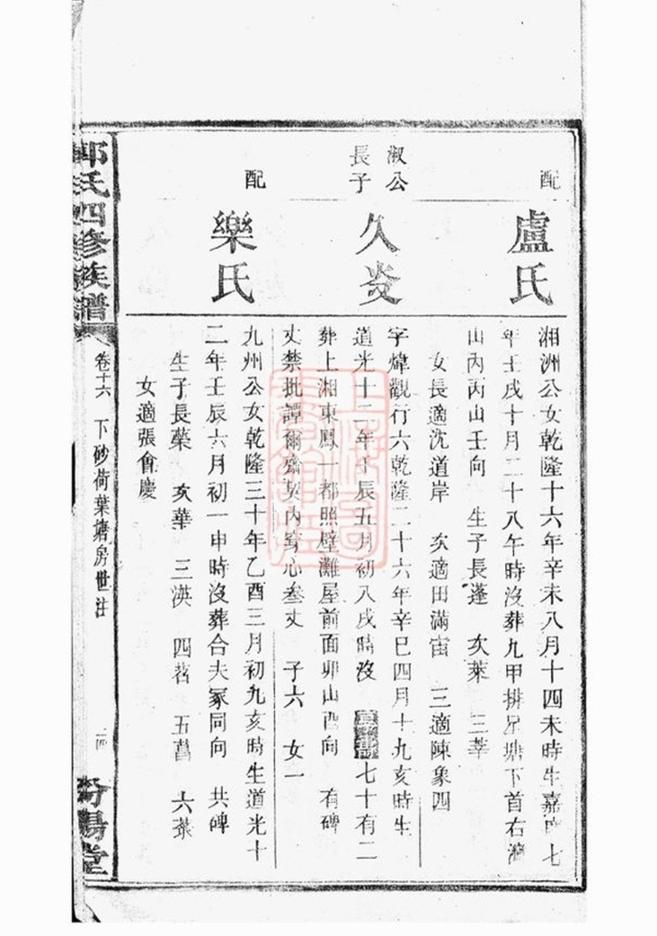 配
盧氏
湘洲公女乾隆十六年辛未八月十四未時生嘉慶七
年壬戌十月二十八午時沒葬九甲排形塘下首右灣
山內丙山壬向 生子長蓬 次萊 三莘
女長適沈道岸 次適田滿宙 三適陳象四
淑公
長子
久炎
字煒觀行六乾隆二十六年辛巳四月十九亥時生
道光十二年壬辰五月初八戌時沒 七十有二
葬上湘東鳳一都照壁灘屋前面卯山酉向 有碑
丈禁批譚爾齋契內穿心叁丈 子六 女一
配
樂氏
九州公女乾隆三十年乙酉三月初九亥時生道光十
二年壬辰六月初一申時沒葬合夫冢同向 共碑
生子長榮 次華 三渶 四茗 五菖 六葇
女適張會慶
郭氏四修族譜
卷十六 下砂荷葉塘房世注
汾陽堂